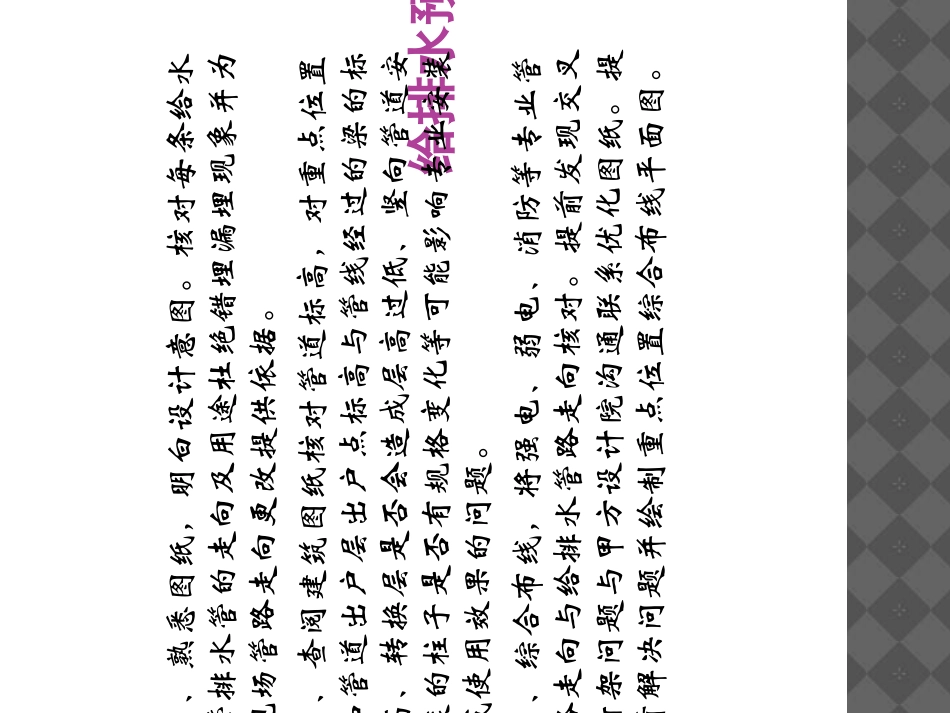 给排水预
、熟悉图纸，明白设计意图。核对每条给水
排水管的走向及用途杜绝错埋漏埋现象并为
场管路走向更改提供依据。
、查阅建筑图纸核对管道标高，对重点位置
管道出户层出户点标高与管线经过的梁的标
、转换层是否会造成层高过低、竖向管道安
的柱子是否有规格变化等可能影响专业安装
使用效果的问题。
、综合布线，将强电、弱电、消防等专业管
走向与给排水管路走向核对。提前发现交叉
架问题与甲方设计院沟通联系优化图纸。提
解决问题并绘制重点位置综合布线平面图。